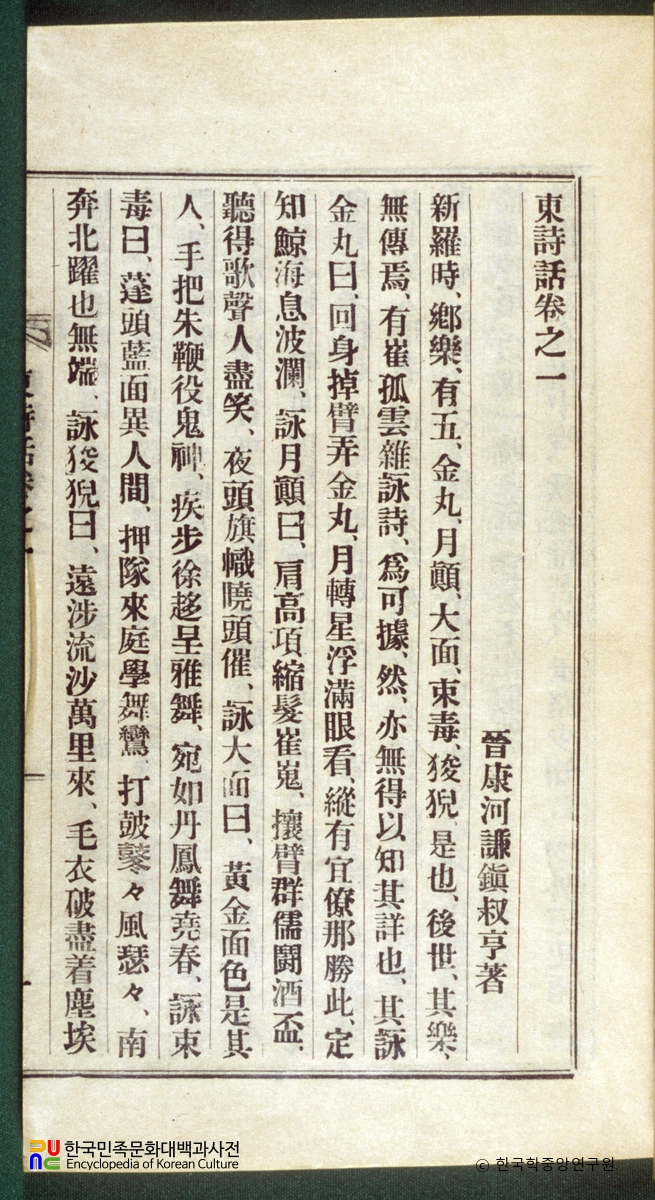 東詩話卷之一
晉康河謙鎭叔亨著
新羅時、鄕樂、有五、金丸、月顚、大面、束毒、狻猊、是也、後世、其樂、
無傳焉、有崔孤雲雜詠詩、爲可據、然、亦無得以知其詳也、其詠
金丸曰、回身掉臂弄金丸、月轉星浮滿眼看、縱有宜僚那勝此、定
知鯨海息波瀾、詠月顚曰、肩高項縮髮崔嵬、攘臂群儒鬪酒盃、
聽得歌聲人盡笑、夜頭旗幟曉頭催、詠大面曰、黃金面色是其
人、手把朱鞭役鬼神、疾步徐趍呈雅舞、宛如丹鳳舞堯春、詠束
毒曰、蓬頭藍面異人間、押隊來庭學舞鸞、打皷鼕々風瑟々、南
奔北躍也無端、詠狻猊曰、遠涉流沙萬里來、毛衣破盡着塵埃
東詩話卷之一
한국민족문화대백과사전
Encyclopedia of Korean Culture
© 한국학중앙연구원